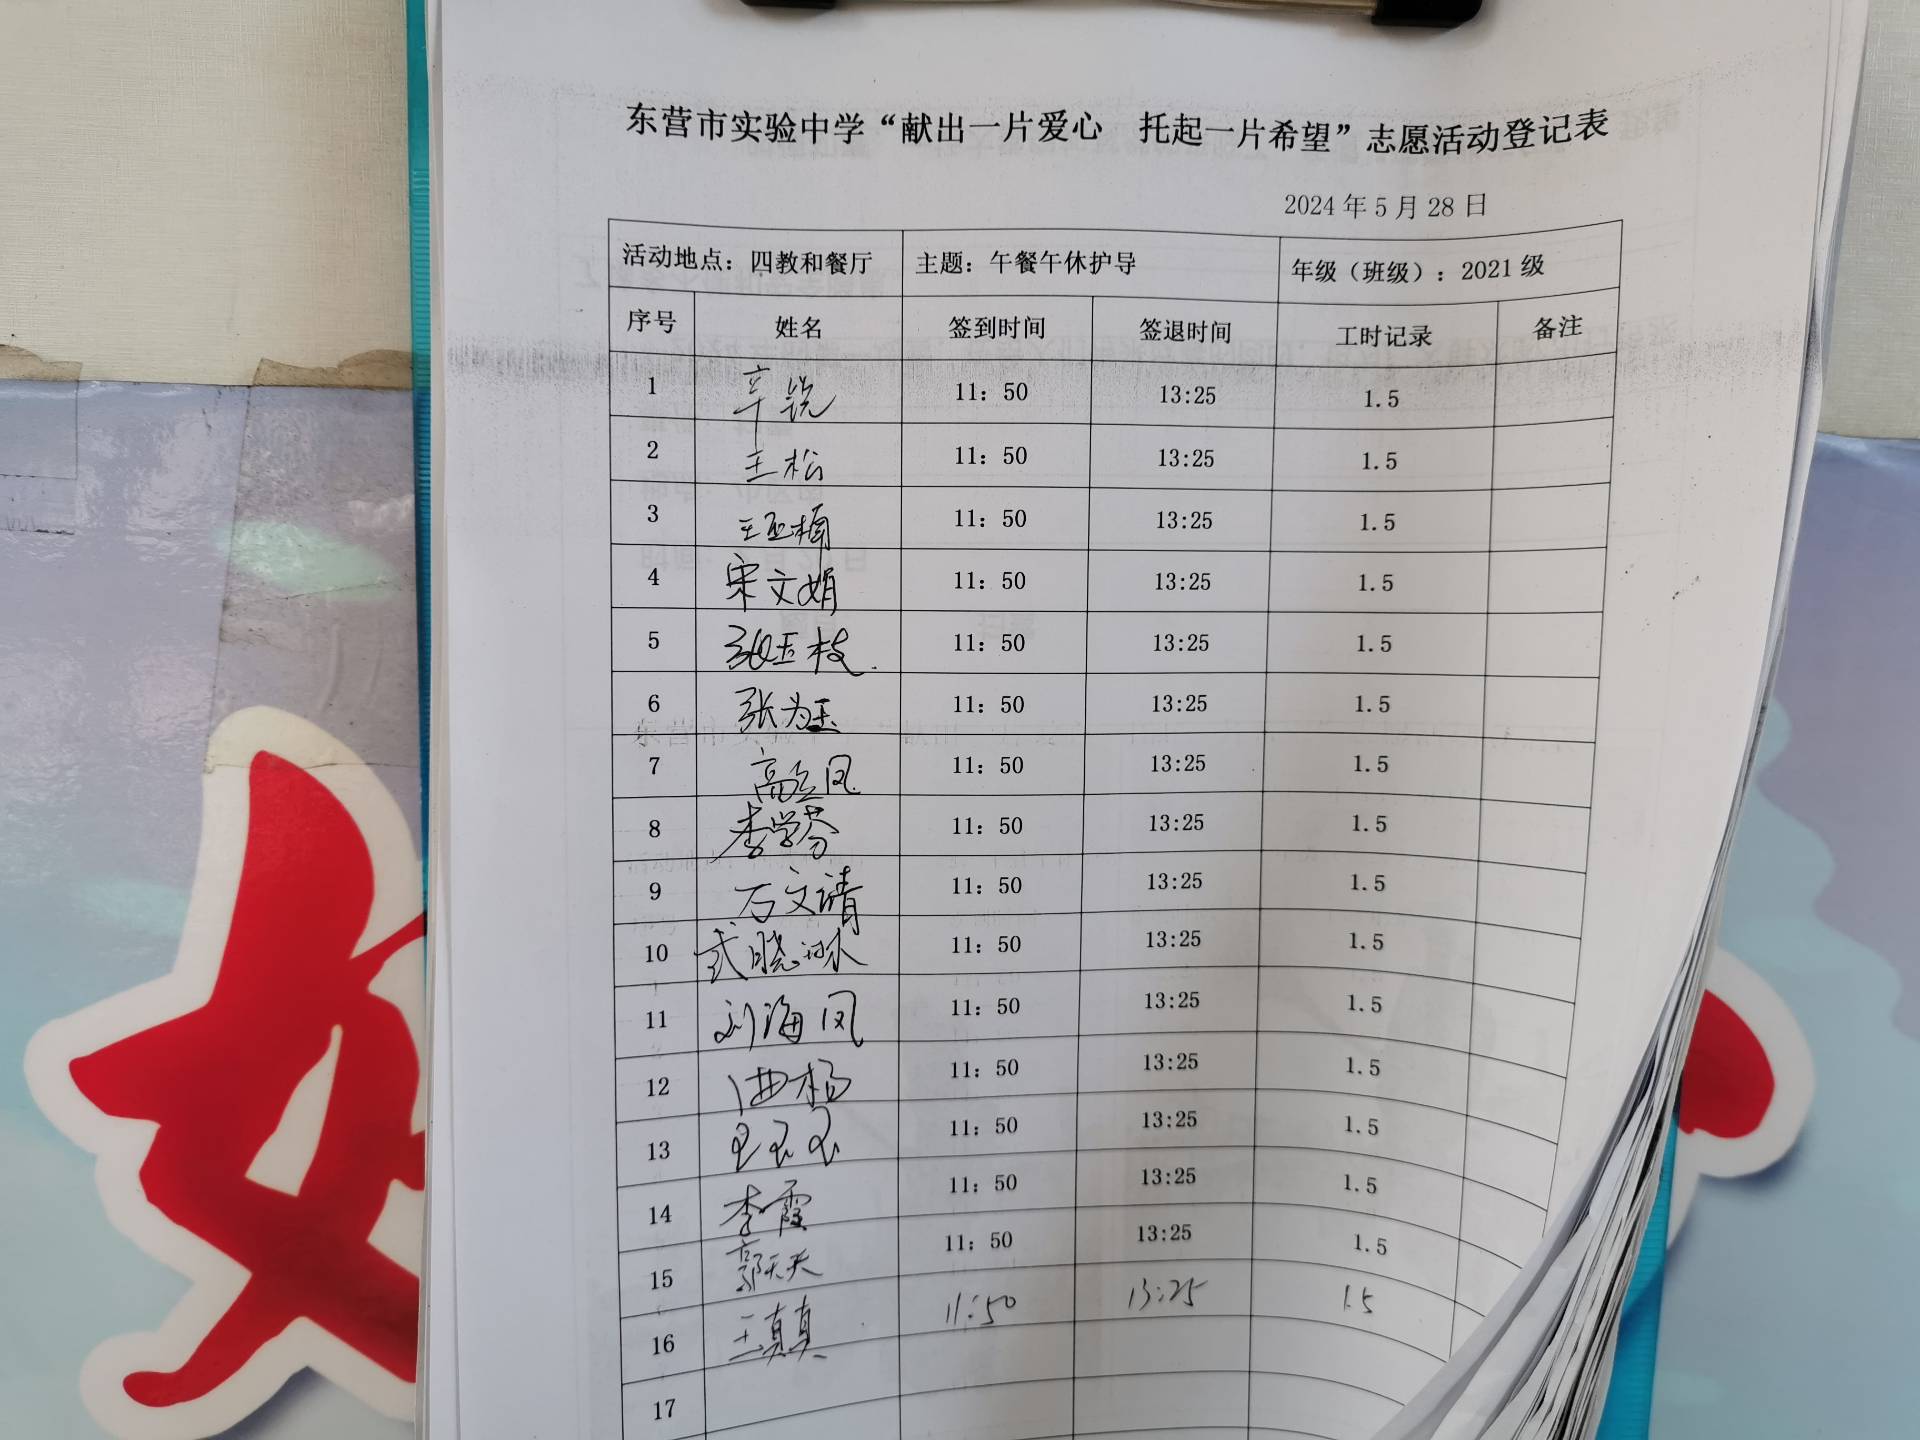 东营市实验中学“献出一片爱心 托起一片希望”志愿活动登记表
2024 年 5 月 28 日
活动地点：四教和餐厅 主题：午餐午休护导 年级（班级）：2021 级
序号 姓名 签到时间 签退时间 工时记录 备注
1 辛锐 11：50 13:25 1.5
2 王松 11：50 13:25 1.5
3 11：50 13:25 1.5
4 宋文娟 11：50 13:25 1.5
5 张玉枝 11：50 13:25 1.5
6 张为玉 11：50 13:25 1.5
7 高立凤 11：50 13:25 1.5
8 李学芬 11：50 13:25 1.5
9 石文靖 11：50 13:25 1.5
10 武晓冰 11：50 13:25 1.5
11 刘海凤 11：50 13:25 1.5
12 11：50 13:25 1.5
13 11：50 13:25 1.5
14 李霞 11：50 13:25 1.5
15 郭天天 11：50 13:25 1.5
16 王真真 11:50 13:25 1.5
17